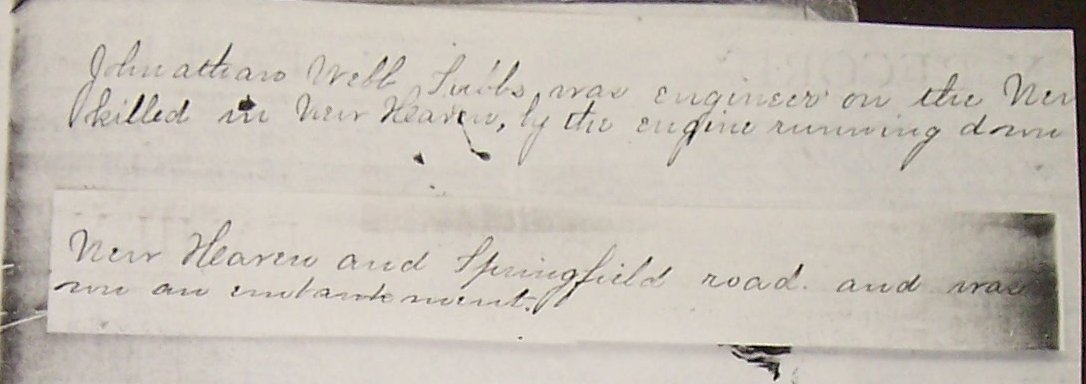 Johnathan Webb Tubbs was engineer on the New
killed in New Heaven, by the engine running down
New Heaven and Springfield road. and was
wn an embankment.